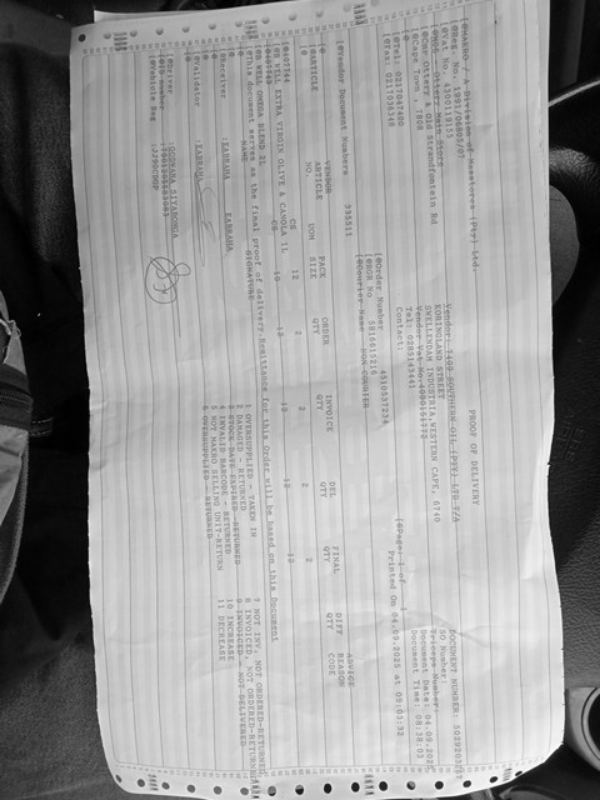 PROOF OF DELIVERY
[@MAKRO / A Division of Masstores (Pty) Ltd.
[@Reg. No. 1991/06805/07
[@Vat No. 4300119155
[@M05 - Ottery Main Store
[@Cnr Ottery & Old Strandfontein Rd
[@Cape Town , 7808
[@Tel: 0217047400
[@Fax: 0217036348
Vendor: 7409 SOUTHERN OIL (PTY) LTD T/A
KORINGLAND STREET
SWELLENDAM INDUSTRIA,WESTERN CAPE, 6740
Vendor Vat No:
Tel: 0285143441
Contact:
DOCUMENT NUMBER:
SO Number:
Triceps Number:
Document Date: 04.09.2025
Document Time: 08:38:03
[@Page: 1 of 1
Printed On 04.09.2025 at 09:03:32
[@Order Number 4510537234
[@RGR No 5816615216
[@Courier Name NON COURIER
[@Vendor Document Numbers 935511
[@ARTICLE VENDOR ARTICLE NO. UOM PACK SIZE ORDER QTY INVOICE QTY DEL QTY FINAL QTY DIFF QTY ADVICE REASON CODE
CS 12 2 2 2 2
[@B WELL EXTRA VIRGIN OLIVE & CANOLA 1L
CS 10 12 12 12 12
[@B WELL OMEGA BLEND 2L
[@This document serves as the final proof of delivery. Remittance for this Order will be based on this Document
NAME SIGNATURE
[@Receiver :KABRAHA KABRAHA
[@Validator :KABRAHA
[@Driver
[@ID Number
[@Vehicle Reg
1 OVERSUPPLIED - TAKEN IN
2 DAMAGED - RETURNED
3 STOCK DATE EXPIRED-RETURNED
4 INVALID BARCODE - RETURNED
5 NOT MAKRO SELLING UNIT-RETURN
6 OVERSUPPLIED - RETURNED
7 NOT INV, NOT ORDERED-RETURNED
8 INVOICED, NOT ORDERED-RETURNED
9 INVOICED, NOT DELIVERED
10 INCREASE
11 DECREASE